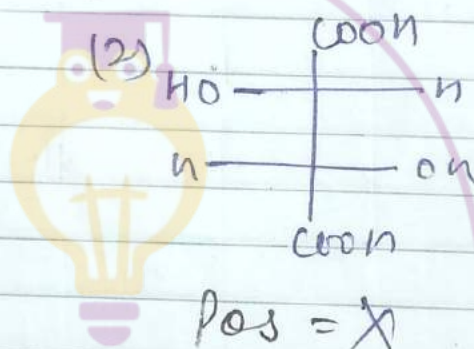 (2)
COOH
HO H
H OH
COOH
POS = X